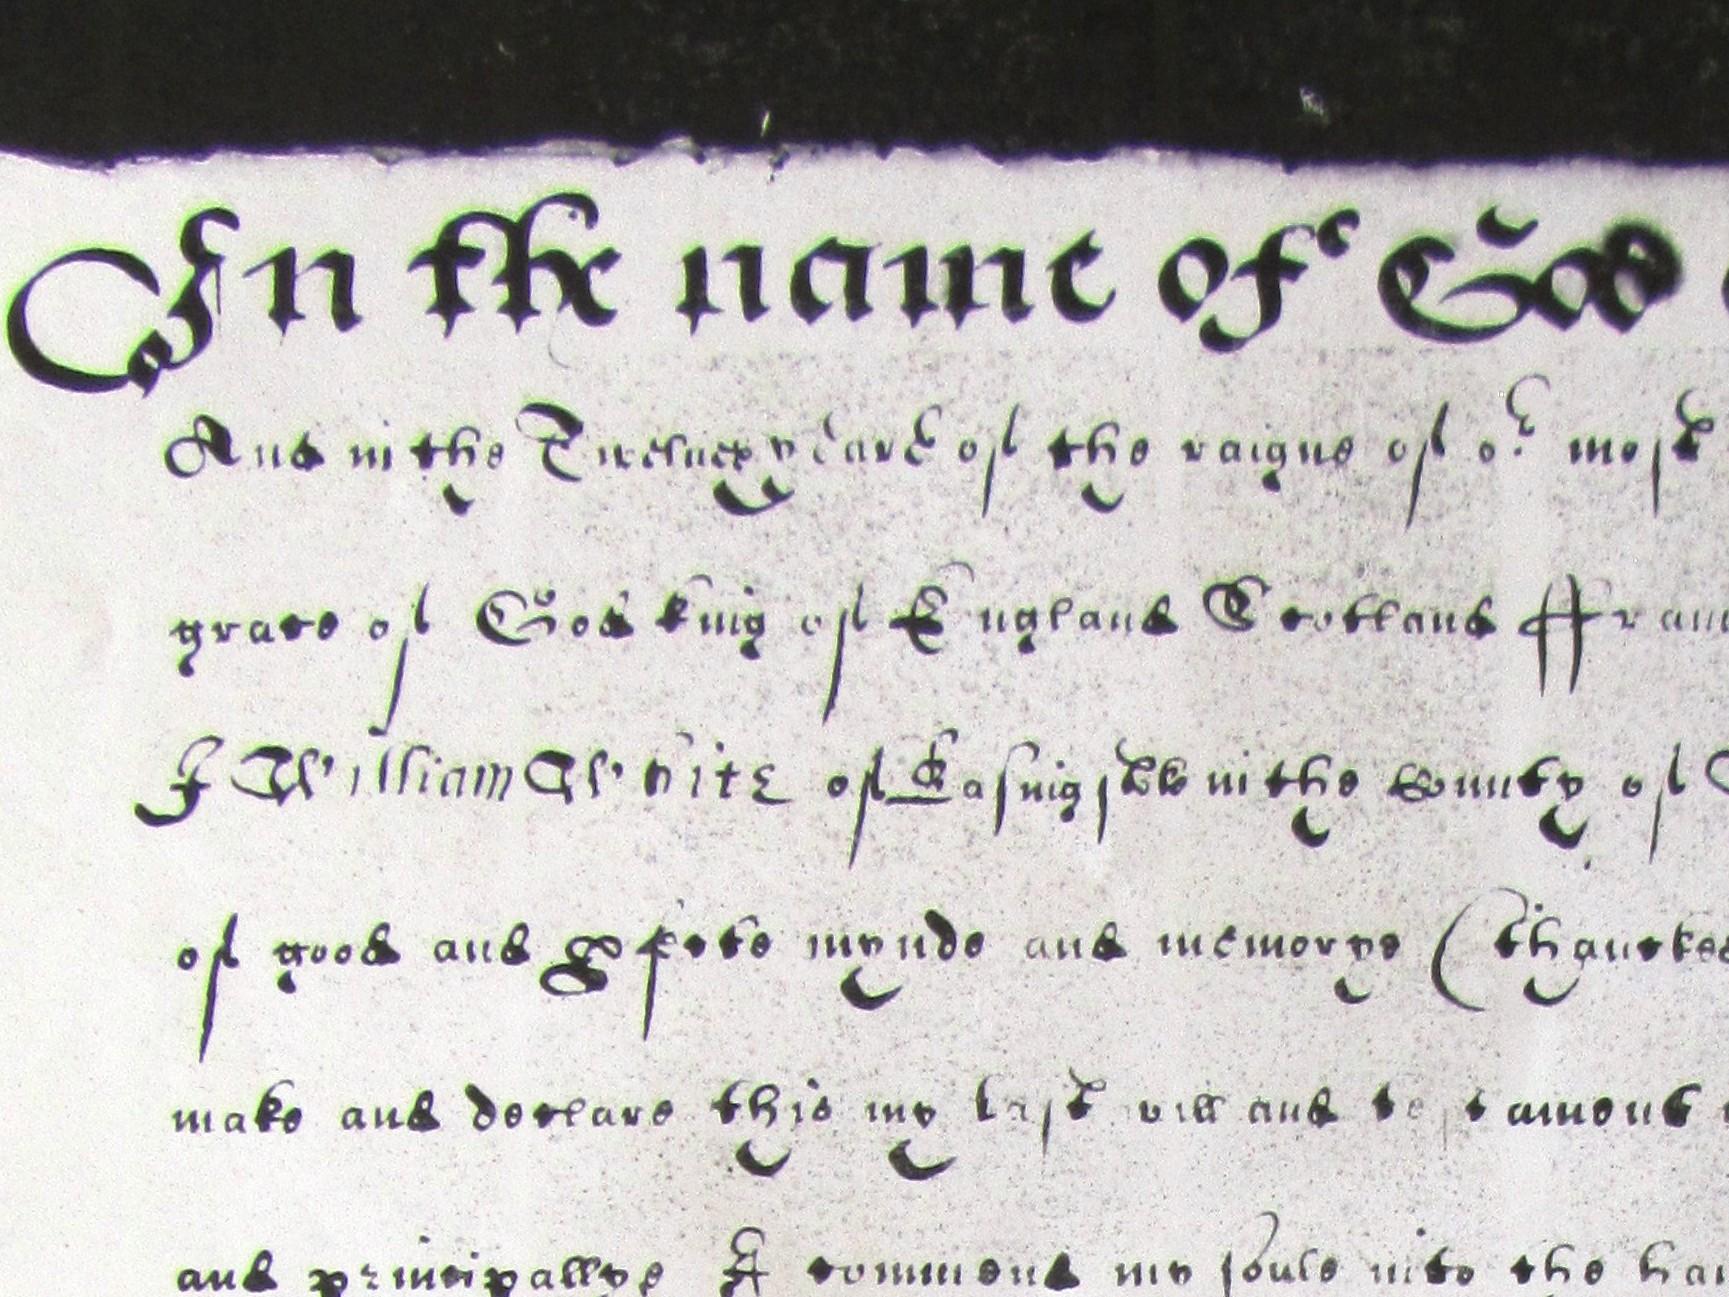 In the name of God
And in the Twelueth yeare of the raigne of or most
grace of God king of England Scotland ffran
I William White of Easingwold in the County of
of good and pfecte mynde and memorye (thanckes
make and declare this my last will and testament
and principallye I commend my soule into the han